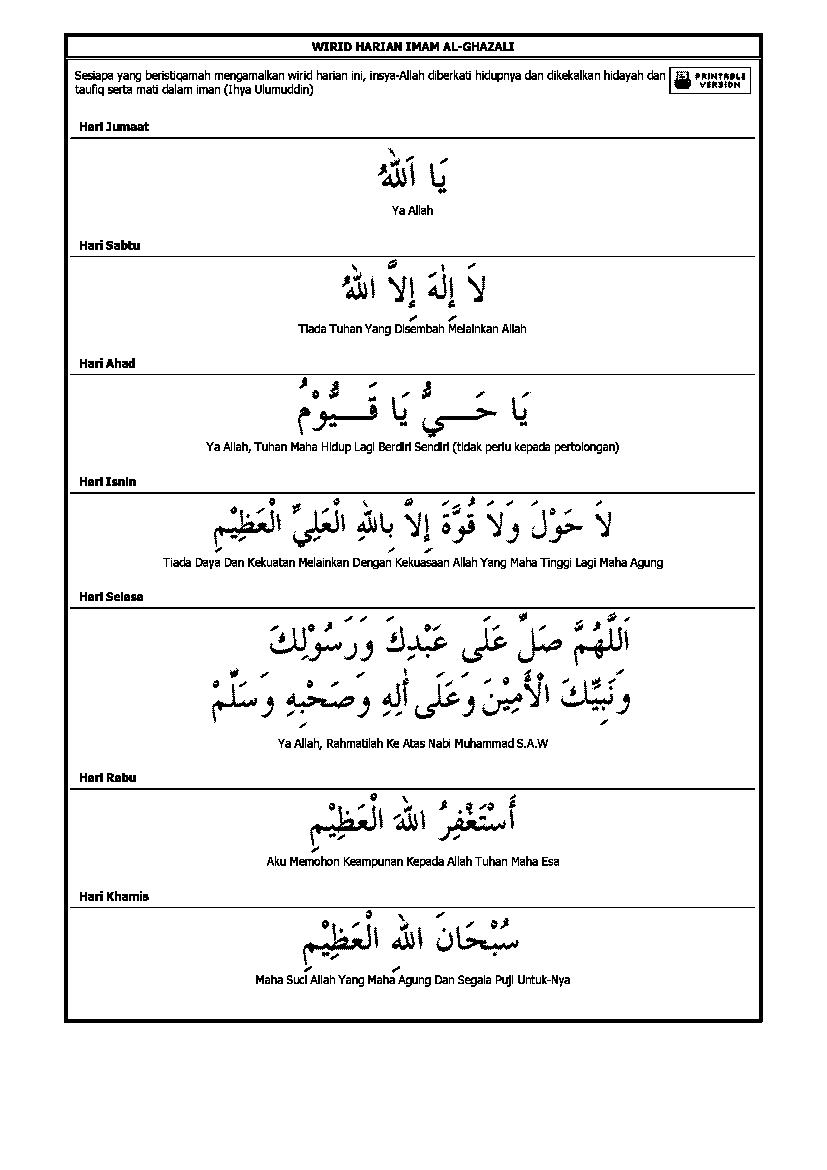 WIRID HARIAN IMAM AL-GHAZALI
Sesiapa yang beristiqamah mengamalkan wirid harian ini, insya-Allah diberkati hidupnya dan dikekalkan hidayah dan
taufiq serta mati dalam iman (Ihya Ulumuddin)
PRINTABLE
VERSION
Hari Jumaat
يَا اَللهُ
Ya Allah
Hari Sabtu
لاَ إِلٰهَ إِلاَّ اللهُ
Tiada Tuhan Yang Disembah Melainkan Allah
Hari Ahad
يَا حَـــيُّ يَا قَـــيُّوْمُ
Ya Allah, Tuhan Maha Hidup Lagi Berdiri Sendiri (tidak perlu kepada pertolongan)
Hari Isnin
لاَ حَوْلَ وَلاَ قُوَّةَ إِلاَّ بِاللهِ الْعَلِيِّ الْعَظِيْمِ
Tiada Daya Dan Kekuatan Melainkan Dengan Kekuasaan Allah Yang Maha Tinggi Lagi Maha Agung
Hari Selasa
اَللَّهُمَّ صَلِّ عَلَى عَبْدِكَ وَرَسُوْلِكَ
وَنَبِيِّكَ الْأَمِيْنَ وَعَلَى أٰلِهِ وَصَحْبِهِ وَسَلَّمْ
Ya Allah, Rahmatilah Ke Atas Nabi Muhammad S.A.W
Hari Rabu
أَسْتَغْفِرُ اللهَ الْعَظِيْمِ
Aku Memohon Keampunan Kepada Allah Tuhan Maha Esa
Hari Khamis
سُبْحَانَ اللهِ الْعَظِيْمِ
Maha Suci Allah Yang Maha Agung Dan Segala Puji Untuk-Nya